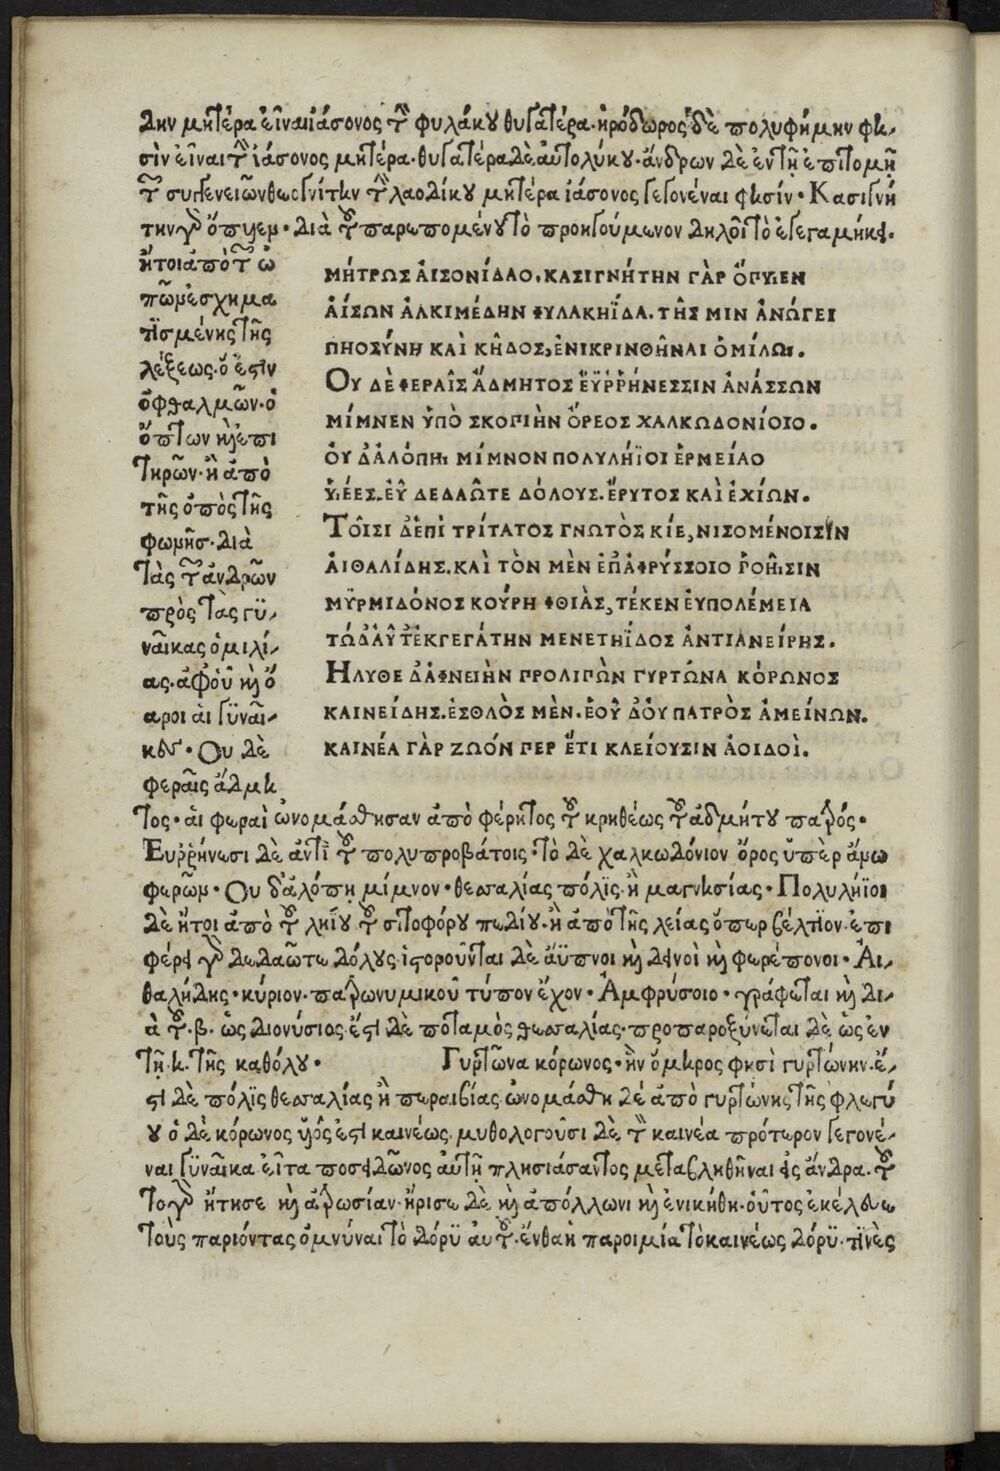 δην μητέρα εἶναι ἰάσονος τὴν φυλάκου θυγατέρα· ἡρόδωρος δὲ πολυφήμην φη-
σὶν εἶναι τὴν ἰάσονος μητέρα· θυγατέρα δὲ ἀυτολύκου· ἄνδρων δὲ ἐν τῇ ἐπιτομῇ
τῶν συγγενειῶν θεογνίτην τὴν λαοδίκου μητέρα ἰάσονος γεγονέναι φησίν· Κασιγνή
την γὰρ ὄπυιεν· διὰ τοῦ παρεπομένου τὸ προηγούμενον δηλοῖ τὸ ἐγεγαμήκει·
ἤτοι ἀπὸ τῶν ὠ
πῶν ἐσχημα
τισμένης τῆς
λέξεως· ὅ ἐστιν
ὀφθαλμῶν· ὁ
ὄπτων καὶ ἐπι
τηρῶν· ἢ ἀπὸ
τῆς ὀπὸς τῆς
φωνῆς· διὰ
τὰς τῶν ἀνδρῶν
πρὸς τὰς γυ-
ναῖκας ὁμιλί-
ας· ἀφοὗ καὶ ὄ
αροι ἁι γυναῖ-
κες· Ου δὲ
φεραῖς ἄδμη
ΜΉΤΡΩΣ ἈΙΣΟΝΊΔΑΟ. ΚΑΣΙΓΝΉΤΗΝ ΓᾺΡ ὌΠΥΙΕΝ
ἈΊΣΩΝ ἈΛΚΙΜΈΔΗΝ ΦΥΛΑΚΗΪ́ΔΑ. ΤΗ͂Σ ΜΙΝ ἈΝΏΓΕΙ
ΠΗΟΣΎΝΗ ΚΑῚ ΚΗ͂ΔΟΣ, ἘΝΙΚΡΙΝΘΗ͂ΝΑΙ ὉΜΊΛΩΙ.
ΟΥ ΔῈ ΦΕΡΑΙ͂Σ ἌΔΜΗΤΟΣ ἘΥΡΡΉΝΕΣΣΙΝ ἈΝΆΣΣΩΝ
ΜΊΜΝΕΝ ὙΠῸ ΣΚΟΠΙῊΝ ὌΡΕΟΣ ΧΑΛΚΩΔΟΝΊΟΙΟ.
ὈΥ ΔἈΛΌΠΗΙ ΜΊΜΝΟΝ ΠΟΛΥΛΉΪΟΙ ἙΡΜΕΊΑΟ
ὙΙΈΕΣ. ἘΥ͂ ΔΕΔΑΩ͂ΤΕ ΔΌΛΟΥΣ. ἜΡΥΤΟΣ ΚΑῚ ἘΧΊΩΝ.
ΤΟΙ͂ΣΙ ΔἘΠῚ ΤΡΊΤΑΤΟΣ ΓΝΩΤῸΣ ΚΊΕ, ΝΙΣΟΜΈΝΟΙΣΙΝ
ἈΙΘΑΛΊΔΗΣ. ΚΑῚ ΤῸΝ ΜῈΝ ἘΠἈΦΡΥΣΣΟΙΟ ῬΟΗ͂ΙΣΙΝ
ΜΥΡΜΙΔΌΝΟΣ ΚΟΎΡΗ ΦΘΙΆΣ, ΤΈΚΕΝ ἘΥΠΟΛΈΜΕΙΑ
ΤῺ ΔἈΥΤ ἘΚΓΕΓΆΤΗΝ ΜΕΝΕΤΗΪ́ΔΟΣ ἈΝΤΙΑΝΕΊΡΗΣ.
ΉΛΥΘΕ ΔἈΦΝΕΙῊΝ ΠΡΟΛΙΠῺΝ ΓΥΡΤΩ͂ΝΑ ΚΌΡΩΝΟΣ
ΚΑΙΝΕΊΔΗΣ. ἘΣΘΛῸΣ ΜῈΝ. ἙΟΥ͂ ΔὈΥ ΠΑΤΡῸΣ ἈΜΕΊΝΩΝ.
ΚΑΙΝΈΑ ΓᾺΡ ΖΩΌΝ ΠΕΡ ἜΤΙ ΚΛΕΊΟΥΣΙΝ ἈΟΙΔΟῚ.
τος· ἁι φεραὶ ὠνομάσθησαν ἀπὸ φέρητος τοῦ κρηθέως τοῦ ἀδμήτου πατρός·
Ευρρήνεσι δὲ ἀντὶ τοῦ πολυπροβάτοις· τὸ δὲ χαλκωδόνιον ὄρος ὕπὲρ ἄνω
φερῶν· Ου δἀλόπῃ μίμνον· θεσσαλίας πόλις ἢ μαγνησίας· Πολυλήϊοι
δὲ ἤτοι ἀπὸ τοῦ ληΐου τοῦ σιτοφόρου πεδίου· ἢ ἀπὸ τῆς λείας ὅπερ βέλτιον· ἐπι
φέρει γὰρ δεδαῶτε δόλους· ἱστοροῦνται δὲ ἄϋπνοι καὶ δεινοὶ καὶ φερέπονοι· Ἀι-
θαλήδης· κύριον· πατρωνυμικοῦ τύπον ἔχον· Ἀμφρύσοιο· γράφεται καὶ δι-
ὰ τοῦ β. ὡς διονύσιος· ἔστι δὲ ποταμὸς θεσσαλίας· προπαροξύνεται δὲ ὡς ἐν
τῇ κ. τῆς καθόλου· Γυρτῶνα κόρωνος· ἣν ὅμηρος φησὶ γυρτώνην· ἔ-
στι δὲ πόλις θεσσαλίας ἢ περαιβίας· ὠνομάσθη δέ ἀπὸ γυρτώνης τῆς φλεγύ
ου ὁ δὲ κόρωνος υἱός ἐστι καινέως· μυθολογοῦσι δὲ τὸν καινέα πρότερον γεγονέ-
ναι γυναῖκα ἐῖτα ποσειδῶνος ἀυτῇ πλησιάσαντος μεταβληθῆναι εἰς ἄνδρα· τοῦ
το γὰρ ᾔτησε καὶ ἀτρωσίαν· ἤρισε δὲ καὶ ἀπόλλωνι καὶ ἐνικήθη· οὗτος ἐκέλευε
τοὺς παριόντας ὀμνύναι τὸ δόρυ αυτοῦ· ἔνθα ἡ παροιμία τὸ καινέως δόρυ· τινὲς